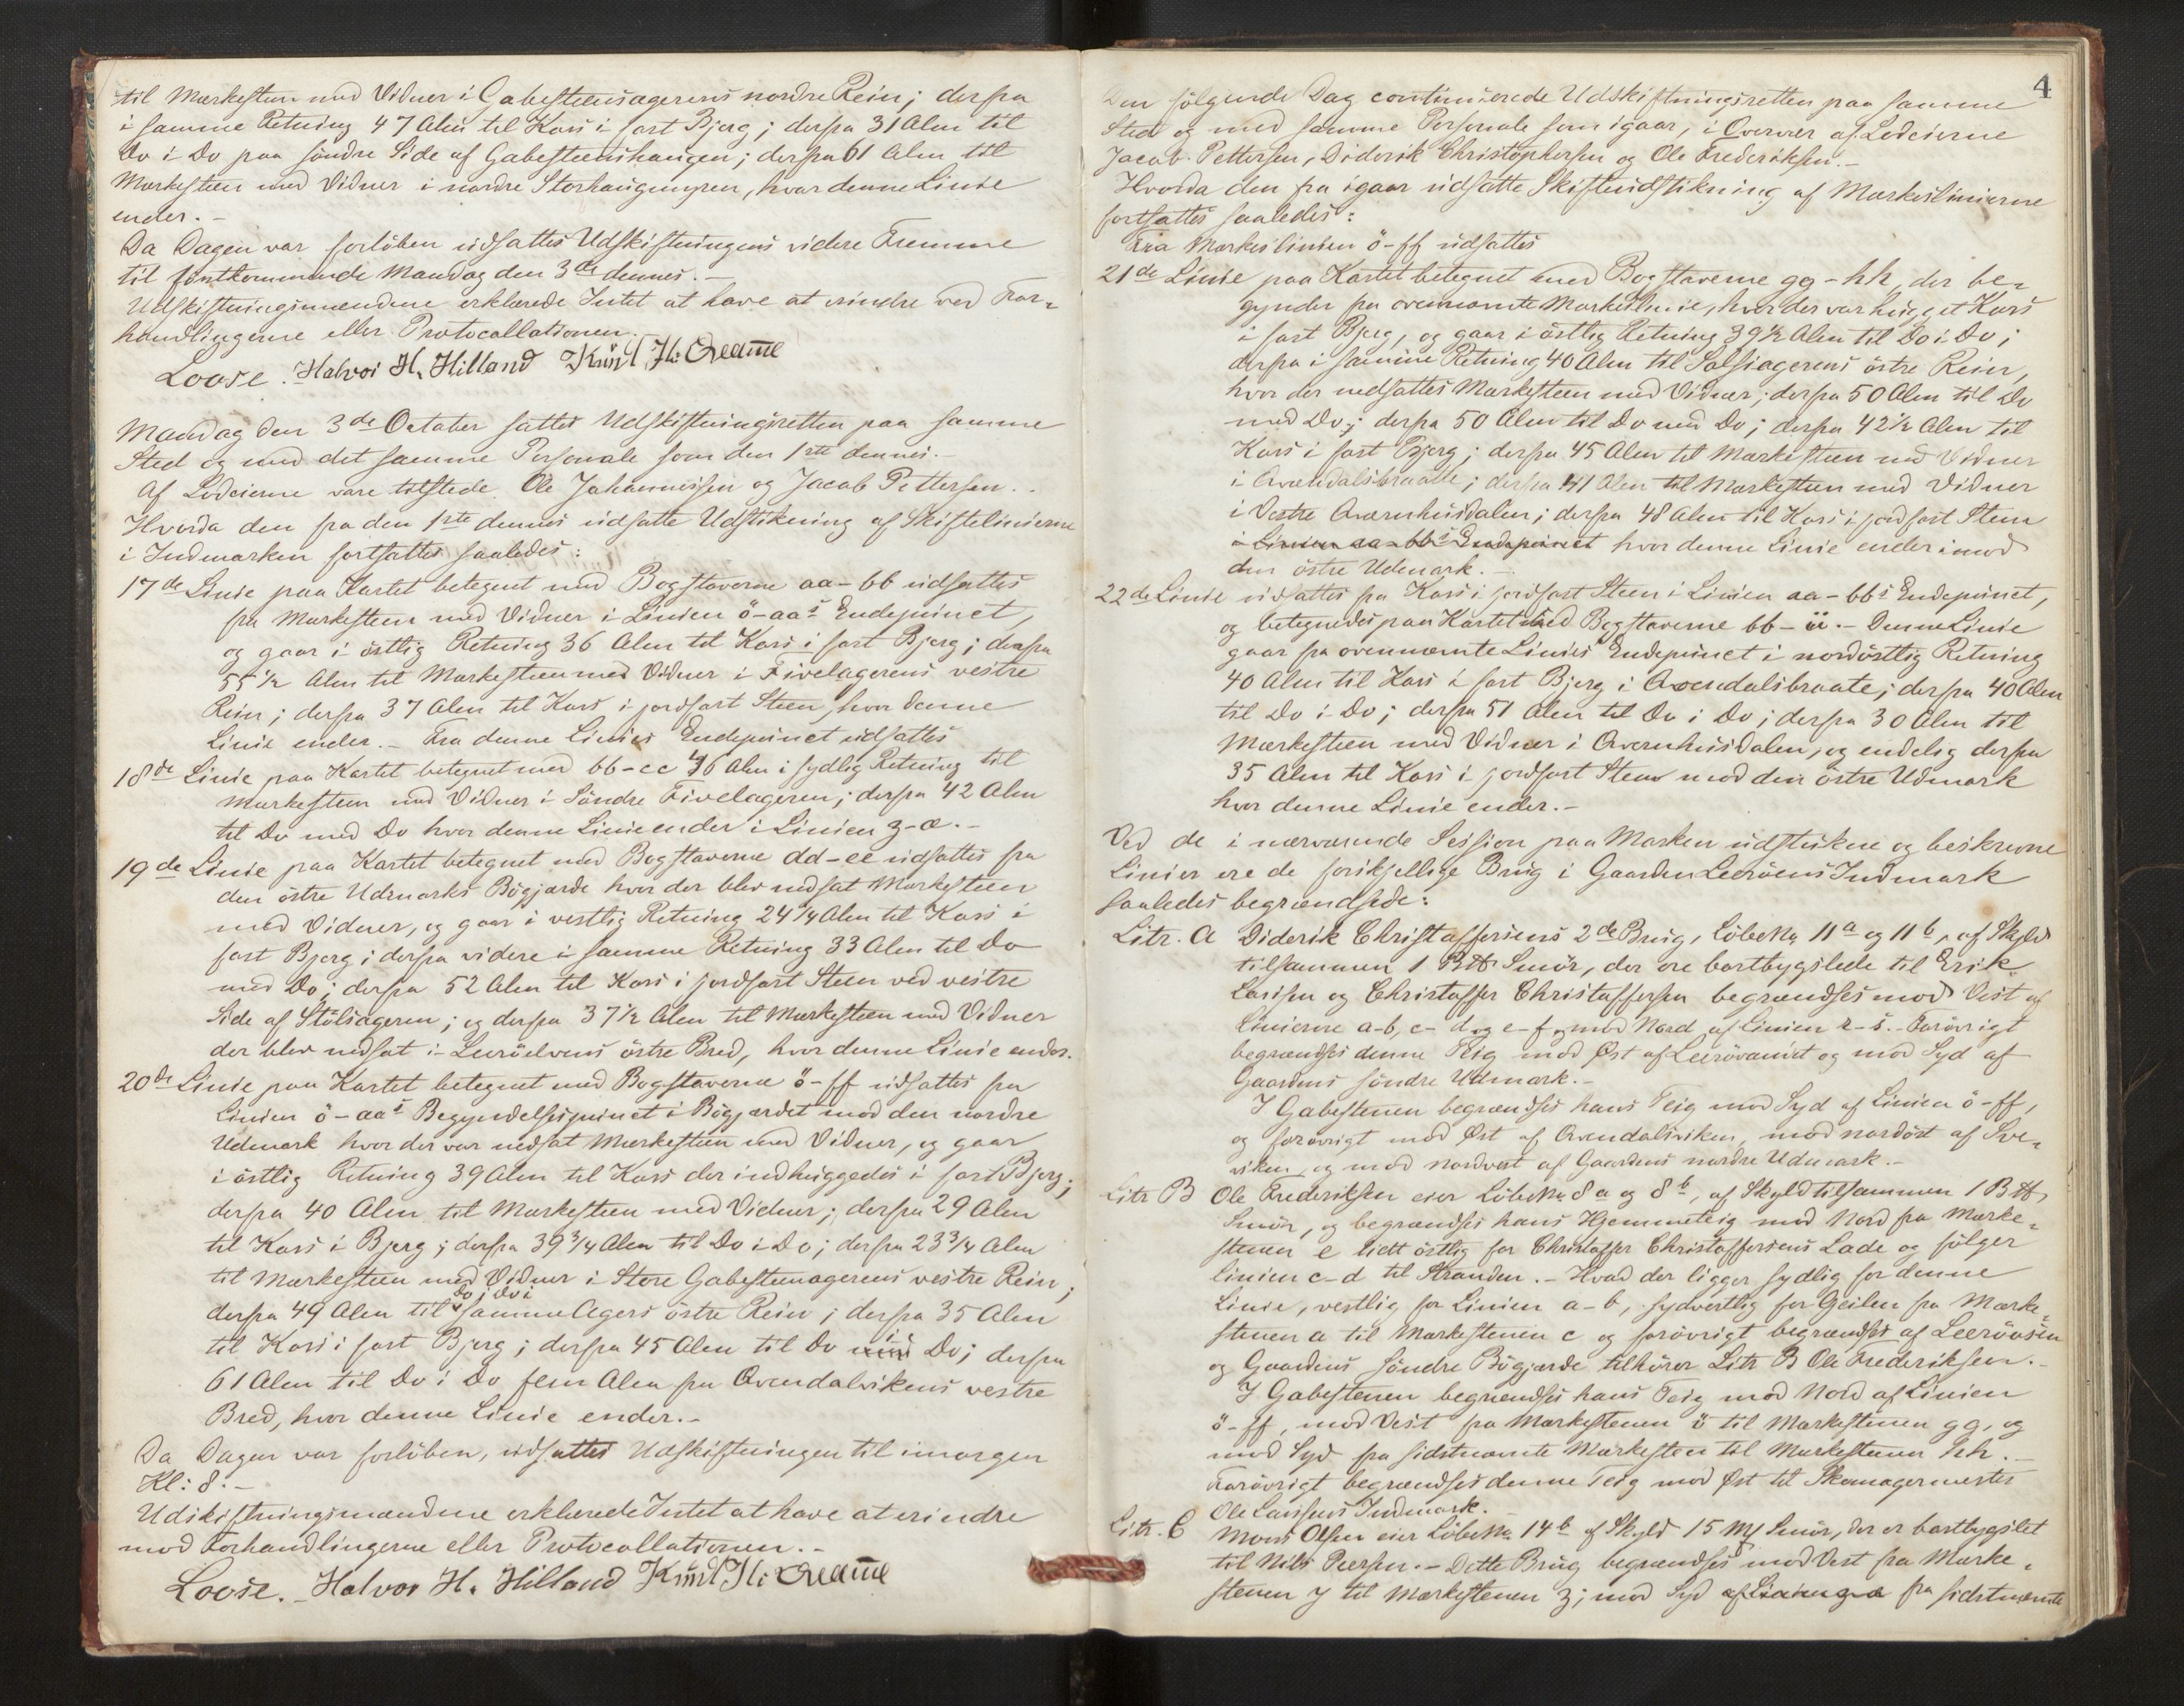 til Mærkesteen med Vidner i Gabesteensagerens nordre Rein; derfra
i samme Retning 47 Alen til Kors i fast Bjerg; derfra 31 Alen til
Do i Do paa søndre Side af Gabesteenshaugen; derfra 61 Alen til
Mærkesteen med Vidner i nordre Storhaugmyren, hvor denne Linie
ender.-
Da Dagen var forløben udsattes Udskiftningens videre Fremme
til førstkommende Mandag den 3de dennes.-
Udskiftningsmændene erklærede Intet at have at erindre ved For-
handlingerne eller Protocollationen.
Loose. Halvor H. Hilland Knut H:
Mandag den 3de October sattes Udskiftningsretten paa samme
Sted og med det samme Personale som den 1ste dennes.-
Af Lodeierne vare tilstede Ole Johannessen og Jacob Pettersen.-
Hvorda den fra den 1ste dennes udsatte Udstikning af Skiftelinierne
i Indmarken fortsattes saaledes:
17de Linie paa Kartet betegnet med Bogstaverne aa-bb udsattes
fra Mærkesteen med Vidner i Linien ö-aas Endepunct,
og gaar i östlig Retning 36 Alen til Kors i fast Bjerg; derfra
55 1/2 Alen til Mærkesteen med Vidner i Fivelagerens vestre
Rein; derfra 37 Alen til Kors i jordfast Steen, hvor denne
Linie ender.- Fra denne Linies Endepunct udsattes
18de Linie paa Kartet betegnet med bb-cc 46 Alen i sydlig Retning til
Mærkesteen med Vidner i Söndre Fivelageren; derfra 42 Alen
til Do med Do hvor denne Linie ender i Linien z-æ.-
19de Linie paa Kartet betegnet med Bogstaverne dd-ee udsattes fra
den östre Udmarks Bögjærde hvor der blev nedsat Mærkesteen
med Vidner, og gaar i vestlig Retning 24 1/4 Alen til Kors i
fast Bjerg; derfra videre i samme Retning 33 Alen til Do
med Do; derfra 52 Alen til Kors i jordfast Steen ved vestre
Side af Stölsageren; og derfra 37 1/2 Alen til Mærkesteen med Vidner
der blev nedsat i Leeröelvens östre Bred, hvor denne Linie ender.
20de Linie paa Kartet betegnet med Bogstaverne ö-ff udsattes fra
Linien ö-aas Begyndelsespunct i Bögjærdet mod den nordre
Udmark hvor der var nedsat Mærkesteen med Vidner, og gaar
i östlig Retning 39 Alen til Kors der indhuggedes i fast Bjerg;
derfra 40 Alen til Mærkesteen med Vidner; derfra 29 Alen
til Kors i Bjerg; derfra 39 3/4 Alen til Do i Do; derfra 23 3/4 Alen
til Mærkesteen med Vidner i Store Gabesteenagerens vestre Rein;
derfra 49 Alen til do i do i samme Agers östre Rein; derfra 35 Alen
til Kors i fast Bjerg; derfra 45 Alen til Do i Do; derfra
61 Alen til Do i Do fem Alen fra Qvendalvikens vestre
Bred, hvor denne Linie ender.-
Da Dagen var forlöben, udsattes Udskiftningen til imorgen
Kl: 8.-
Udskiftningsmændene erklærede Intet at have at erindre
mod Forhandlingerne eller Protocollationen.-
Loose. Halvor H. Hilland Knut H:
4
Den fölgende Dag continuerede Udskiftningsretten paa samme
Sted og med samme Personale som igaar, i Overvær af Lodeierne
Jacob Pettersen, Diderik Christophersen og Ole Frederiksen.-
Hvorda den fra igaar udsatte Skifteudstikning af Mærkeslinierne
fortsattes saaledes:
Fra Mærkeslinien ö-ff udsattes
21de Linie paa Kartet betegnet med Bogstaverne gg-hh, der be-
gynder fra ovennævnte Mærkeslinie, hvor der var hugget Kors
i fast Bjerg, og gaar i östlig Retning 39 1/2 Alen til Do i Do;
derfra i samme Retning 40 Alen til Salsiagerens östre Rein,
hvor der nedsattes Mærkesteen med Vidner; derfra 50 Alen til Do
med Do; derfra 50 Alen til Do med Do; derfra 42 1/2 Alen til
Kors i fast Bjerg; derfra 45 Alen til Mærkesteen med Vidner
i Qvendalsbraatte; derfra 41 Alen til Mærkesteen med Vidner
i Vestre Qværnhusdalen; derfra 48 Alen til Kors i jordfast Steen
i Linien aa-bbs Endepunct hvor denne Linie ender imod
den östre Udmark.-
22de Linie udsattes fra Kors i jordfast Steen i Linien aa-bbs Endepunct,
og betegnedes paa Kartet med Bogstaverne bb-ii.- Denne Linie
gaar fra ovennævnte Linies Endepunct i nordöstlig Retning
40 Alen til Kors i fast Bjerg i Qvendalsbraate; derfra 40 Alen
til Do i Do; derfra 51 Alen til Do i Do; derfra 30 Alen til
Mærkesteen med Vidner i Qvernhusdalen, og endelig derfra
35 Alen til Kors i jordfast Steen mod den östre Udmark
hvor denne Linie ender.-
Ved de i nærværende Session paa Marken udstukne og beskrevne
Linier ere de forskjellige Brug i Gaarden Leeröens Indmark
saaledes begrændsede:
Litr. A Diderik Christoffersens 2de Brug, Löbe No 11a og 11b, af Skyld
tilsammen 1 B℔ Smör, der ere bortbygslede til Erik
Larssen og Christoffer Christoffersen begrændses mod Vest af
Linierne a-b, c-d og e-f, mod Nord af Linien r-s.- Forövrigt
begrændses denne Teig mod Øst af Leerövandet og mod Syd af
Gaardens söndre Udmark.-
I Gabestenen begrændses hans Teig mod Syd af Linien ö-ff,
og forövrigt mod Øst af Qvendalsviken, mod nordöst af Sve-
viken, og mod nordvest af Gaardens nordre Udmark.-
Litr B Ole Frederiksen eier Löbe No 8a og 8b, af Skyld tilsammen 1 B℔
Smör, og begrændses hans Hjemmeteig mod Nord fra Mærke-
stenen e lidt östlig for Christoffer Christoffersens Lade og fölger
linien c-d til Stranden.- Hvad der ligger sydlig for denne
Linie, vestlig for Linien a-b, sydvestlig for Geilen fra Mærke-
stenen a til Mærkestenen c og forövrigt begrændses af Leeröosen
og Gaardens söndre Bögjærde tilhörer Litr B Ole Frederiksen.-
I Gabestenen begrændses hans Teig mod Nord af Linien
ö-ff, mod Vest fra Mærkestenen ö til Mærkestenen gg, og
mod Syd fra sidstnævnte Mærkesten til Mærkestenen hh.-
Forövrigt begrændses denne Teig mod Øst til Skomagermester
Ole Larssens Indmark.
Litr. C Mons Olsen eier Löbe No 14b af Skyld 15 M Smör, der er bortbygslet
til Nils Peersen.- Dette Brug begrændses mod Vest fra Mærke-
stenen y til Mærkestenen z; mod Syd af Linien z-æ fra sidstnævnte